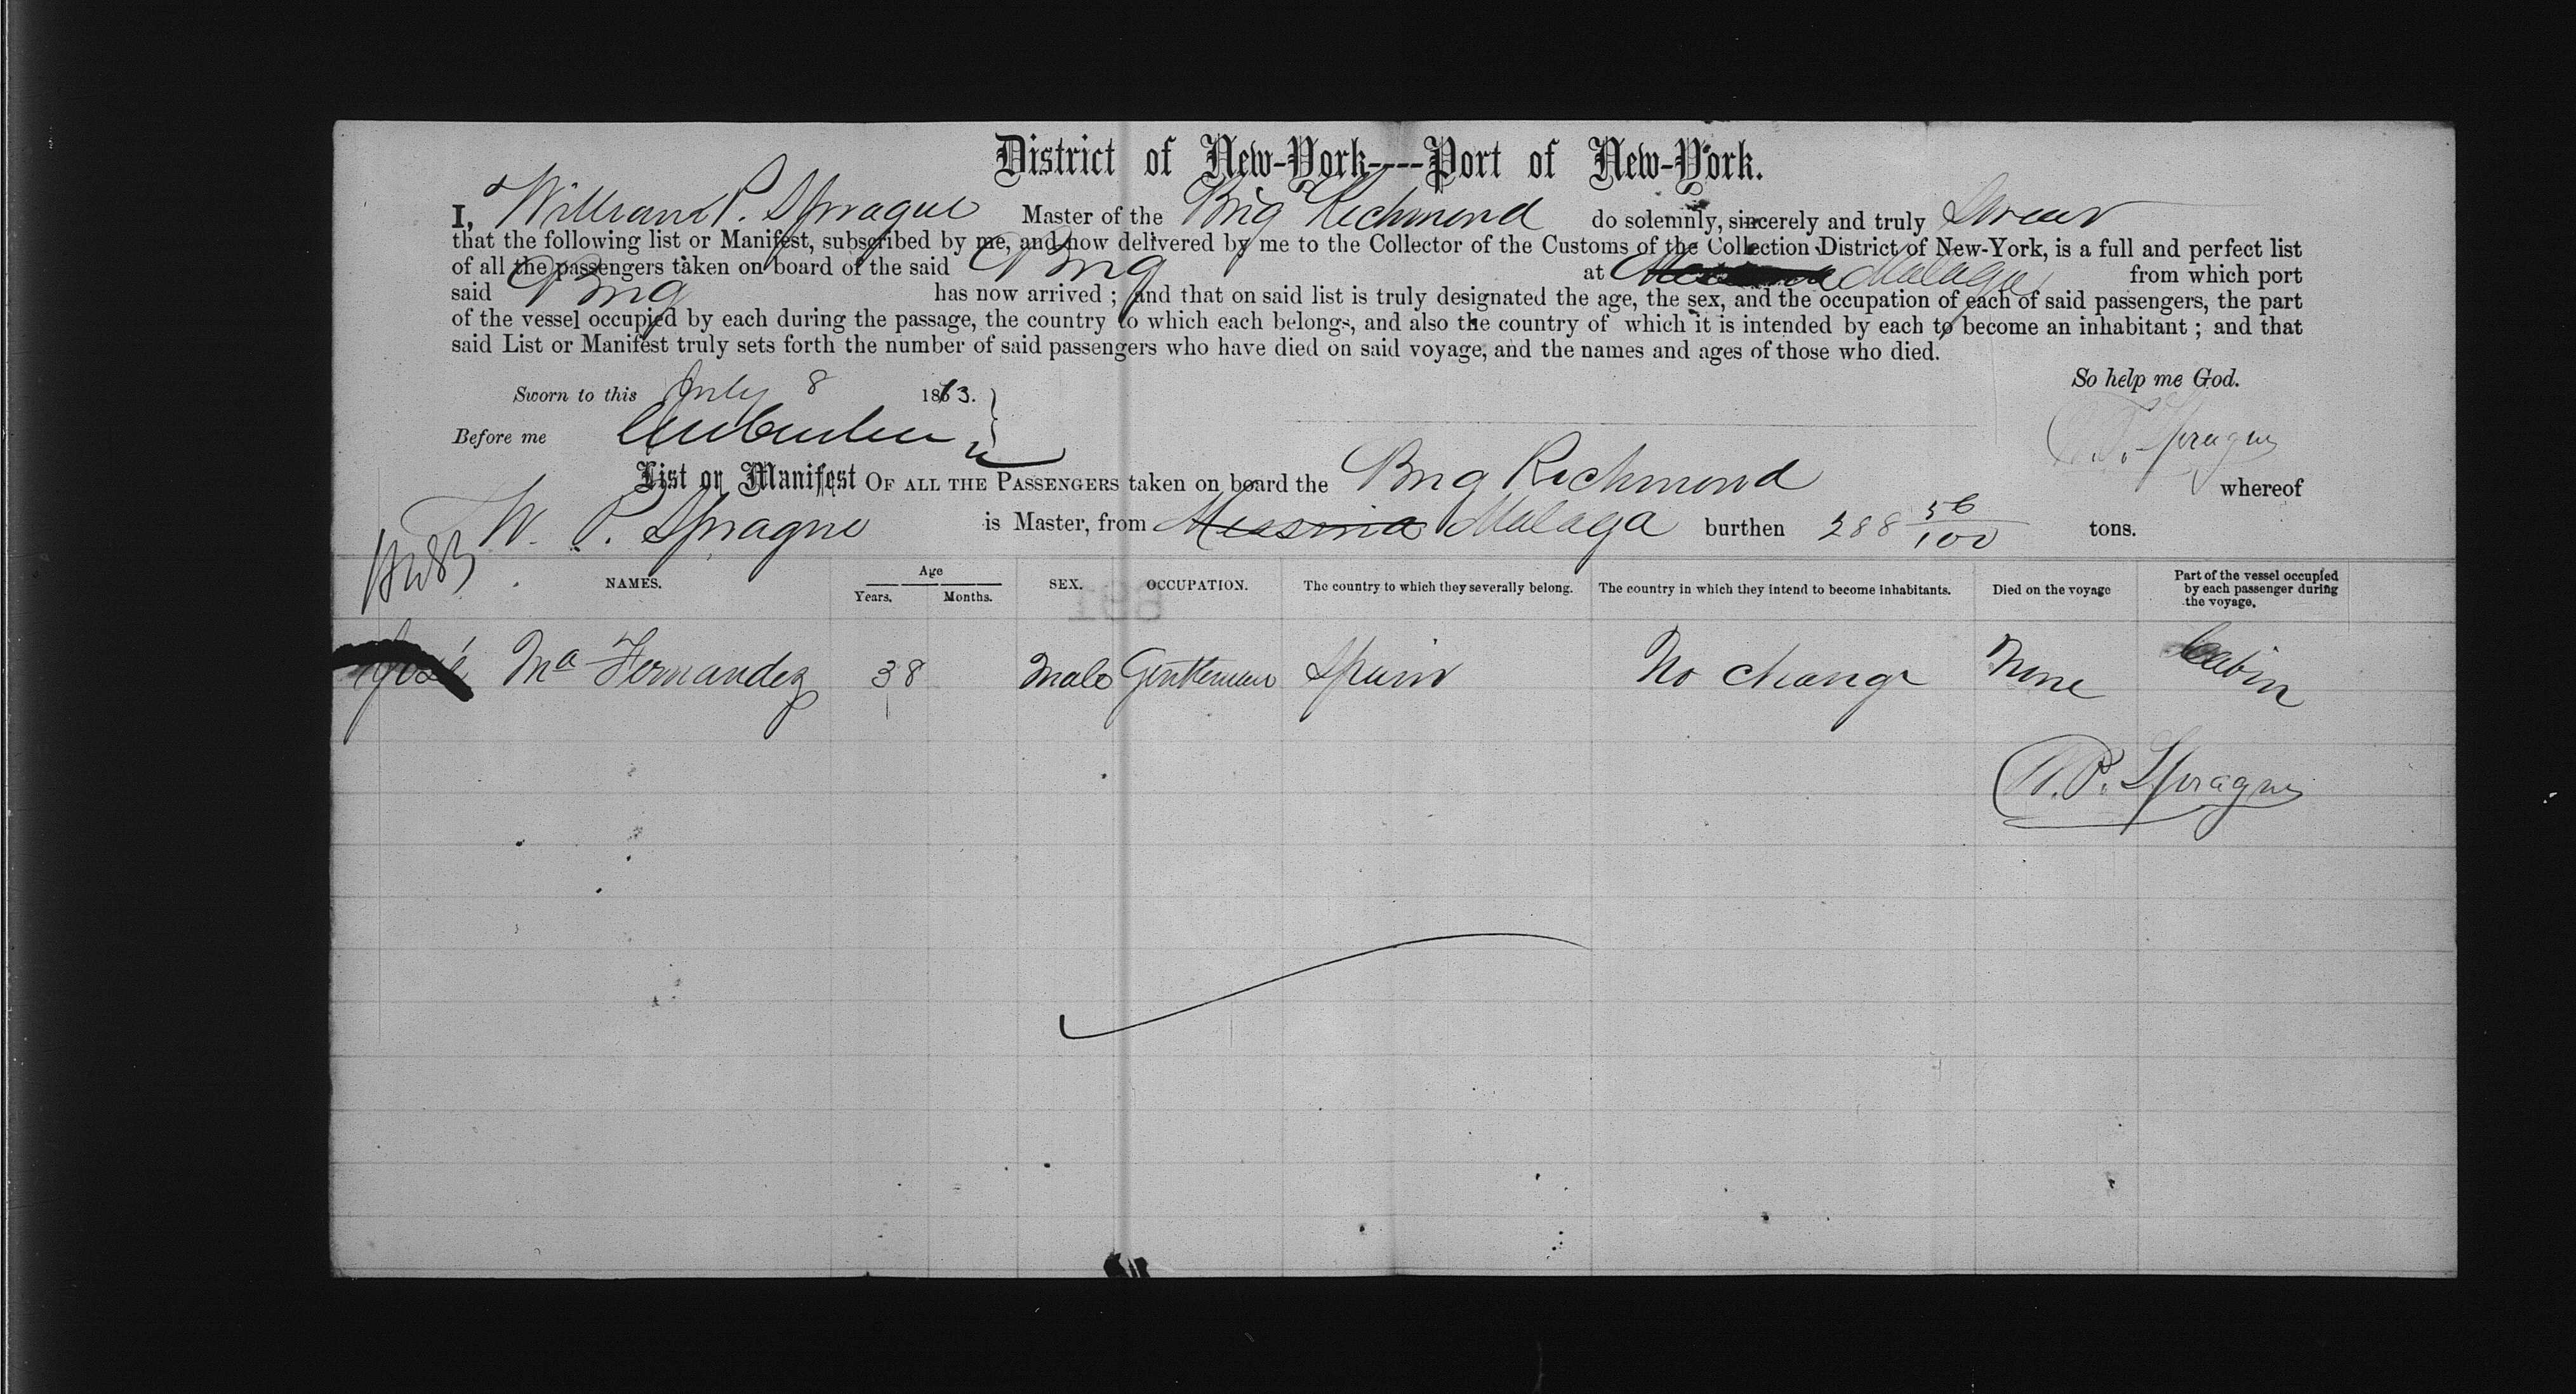 District of New-York----Port of New-York.
I, William P. Sprague Master of the Brig Richmond do solemnly, sincerely and truly Swear
that the following list or Manifest, subscribed by me, and now delivered by me to the Collector of the Customs of the Collection District of New-York, is a full and perfect list
of all the passengers taken on board of the said Brig at Malaga from which port
said Brig has now arrived ; and that on said list is truly designated the age, the sex, and the occupation of each of said passengers, the part
of the vessel occupied by each during the passage, the country to which each belongs, and also the country of which it is intended by each to become an inhabitant ; and that
said List or Manifest truly sets forth the number of said passengers who have died on said voyage, and the names and ages of those who died.
So help me God.
Sworn to this July 8 1873.
Before me
P. Sprague
List or Manifest OF ALL THE PASSENGERS taken on board the Brig Richmond whereof
W. P. Sprague is Master, from Messina Malaga burthen 288 56/100 tons.
NAMES. Age Years. Months. SEX. OCCUPATION. The country to which they severally belong. The country in which they intend to become inhabitants. Died on the voyage Part of the vessel occupied by each passenger during the voyage.
José Ma Fernandez 38 Male Gentleman Spain No change None Cabin
W. P. Sprague